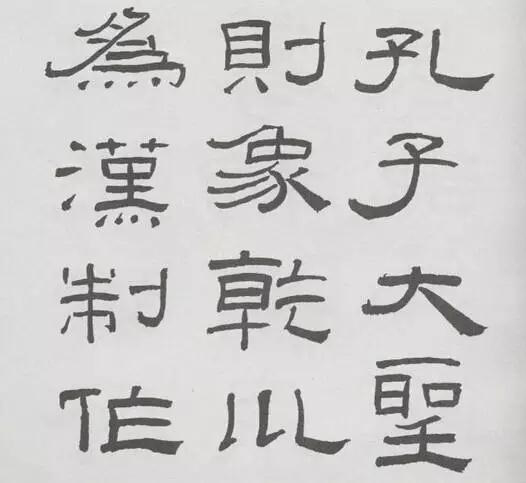 孔子大聖
則象乾川
為漢制作